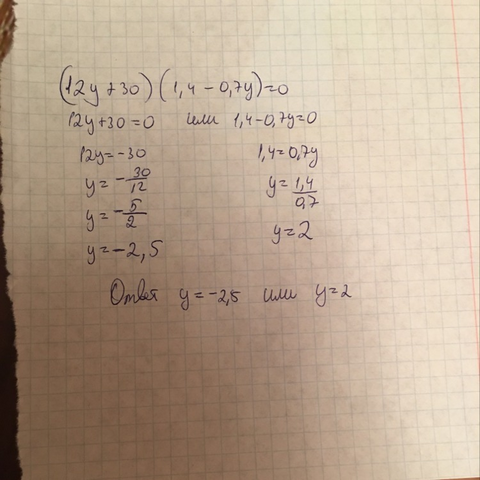 (12y+30)(1,4-0,7y)=0
12y+30=0 или 1,4-0,7y=0
12y=-30 1,4=0,7y
y=-30/12 y=1,4/0,7
y=-5/2 y=2
y=-2,5
Ответ y=-2,5 или y=2